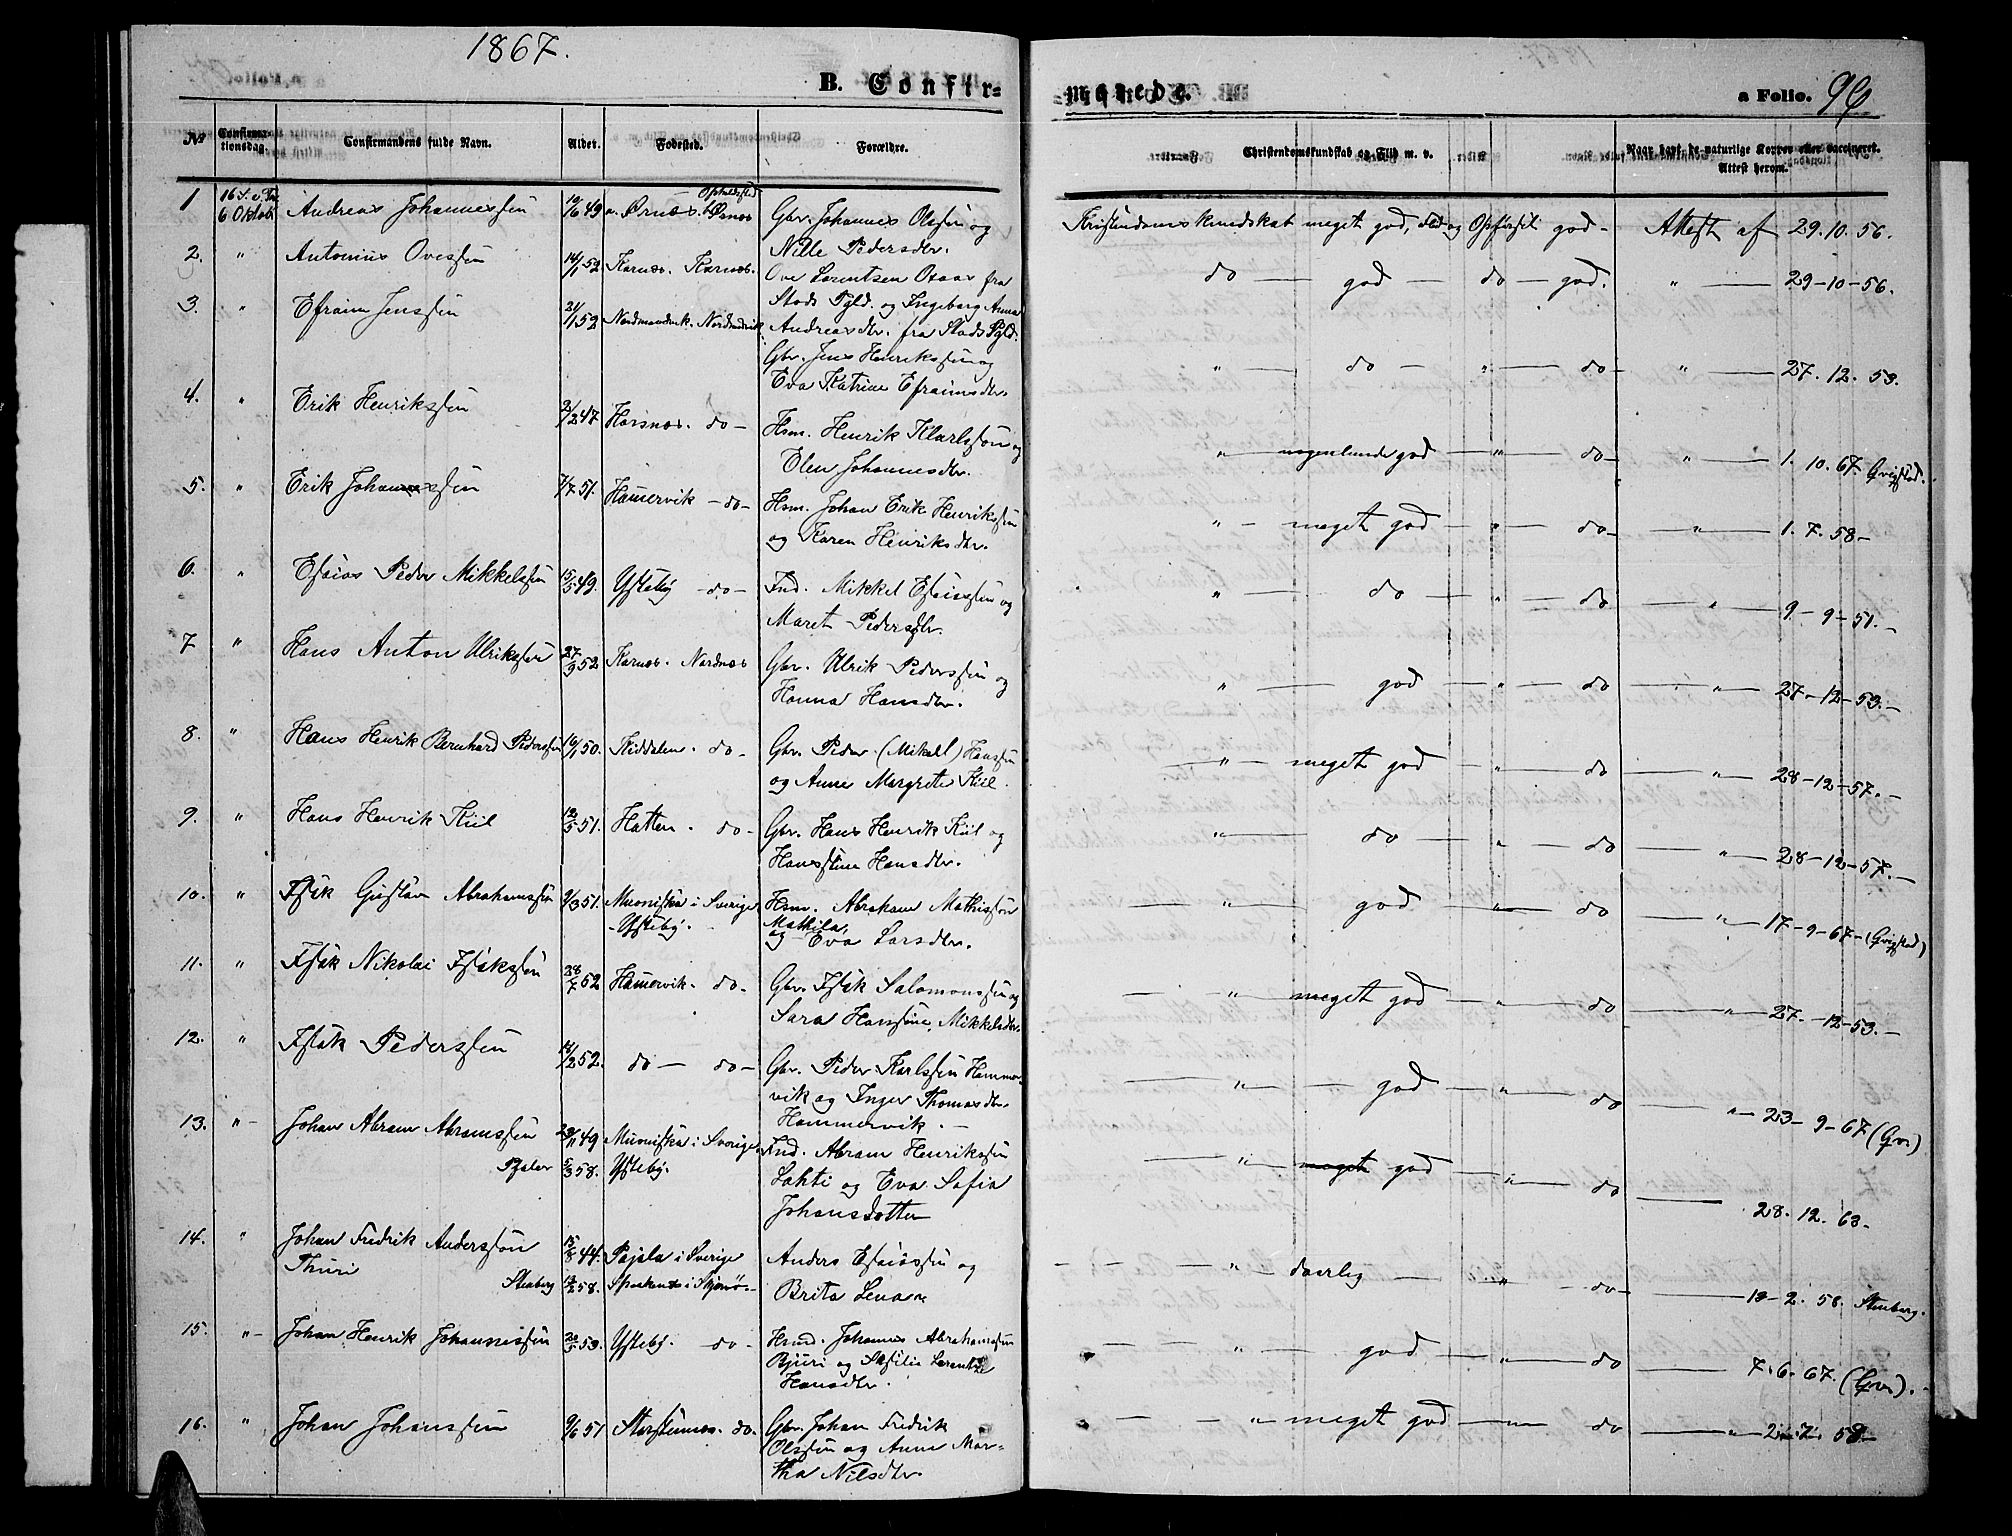 1867.
B. Confir=
merede.
a Folio. 96
No
Confirma-
tionsdag.
Confirmandens fulde Navn.
Alder.
Fødested.
Forældre.
Christendomskundskab og Flid m. v.
Naar havt de naturlige Kopper eller vaccineret.
Attest herom.
Opholdsted
1 16 S. e. Tr. 6 Oktob. Andreas Johannessen 10/6 49 Ørnæs. Ørnæs Gbr. Johannes Olssen og
Nille Pedersdtr.
Kristendomskundskab meget god, Flid og Opførsel god - Attest af 29.10.56.
2. " Antonius Ovessen 14/1 52 Karnæs. Karnæs. Ove Lorentsen Otaar fra
Stods Pgld. og Ingeborg Anna
Andreasdtr. fra Stods Pgld.
do — god — do — god. " — 29-10-56.
3. " Efraim Jenssen 21/1 52 Nordmandvik. Nordmdvik. Gbr. Jens Henrikssen og
Eva Katrine Efraimsdtr.
" — do — " — do — " — 27.12.53.
4. " Erik Henrikssen 2/2 47 Horsnæs. do - Hsm. Henrik Karlssen og
Elen Johannesdtr.
" — nogenlunde god — " — do - " — 1.10.67. Qvigstad.
5. " Erik Johanssen 7/7 51. Hamervik - do - Hsm. Johan Erik Henrikssen
og Karen Henriksdtr.
" — meget god — " — do - " — 1.7.58 -
6. " Esaias Peder Mikkelssen 15/5 49. Ystebÿ - do - Ind. Mikkel Esaiassen og
Maret Pedersdtr.
" — do — " — do — " — 9-9-51. -
7 " Hans Anton Ulrikssen 27/9 52 Karnæs. Nordnæs Gbr. Ulrik Pederssen og
Hanna Hansdtr.
" — god — " — do — " — 27-12-53. -
8. " Hans Henrik Bernhard Pederssen 16/1 50. Kiddalen. do - Gbr. Peder (Mikal) Hanssen
og Anne Margrete Kiil.
" — meget god — " — do — " — 28-12-57. -
9. " Hans Henrik Kiil 12/5 51. Hatten. do - Gbr. Hans Henrik Kiil og
Hanssine Hansdtr.
" — do — " — do — " — 28-12-57. -
10. " Isak Gustav Abrahamssen 9/3 51. Muoniska i Sverige
- Ystebÿ. - Hsm. Abraham Mathissen
og Mathila Eva Larsdtr.
" — god — " — do — " — 17-9-67 - (Qvigstad)
11. " Isak Nikolai Isakssen 28/7 52 Hamervik. do - Gbr. Isak Salomonssen og
Sara Hansine Mikkelsdtr.
" — meget god — " — do — " — 27.-12-53. -
12. " Isak Pederssen 14/2 52. do — do - Gbr. Peder Karlssen Hammer-
vik og Inger Thomasdtr.
Hammervik. -
" — god — " — do — " — 23-9-67 (Qvi)
13. " - Johan Abram Abramssen 29/11 49 Muoniska i Sverige.
5/3 58. Ystebÿ. Ind. Abram Henrikssen
Lahti og Eva Sofia
Johansdotter
" — meget god — " — do — 28.12.63.
14. " Johan Fredrik Anderssen
Thuri
Stenberg 15/8 44. Pajala i Sverige
12/2 58. Anders Esaiassen og
Brita Lena
" — daarlig — " — do - 12-2.58. Stenberg.
15. " - Johan Henrik Johannessen 20/5 53. Ystebÿ. do - Hsmd. Johannes Abrahamssen
Bjuri og
Hansdtr.
" — god — " — do — 7.6.67. (Qvi). -
16. " Johan Johanssen 9/6 51 Storstennæs. do. Gbr. Johan Fredrik
Olssen og Anne Mar-
tha Nilsdtr.
" — meget god — " — do — " — 2.7.58 -